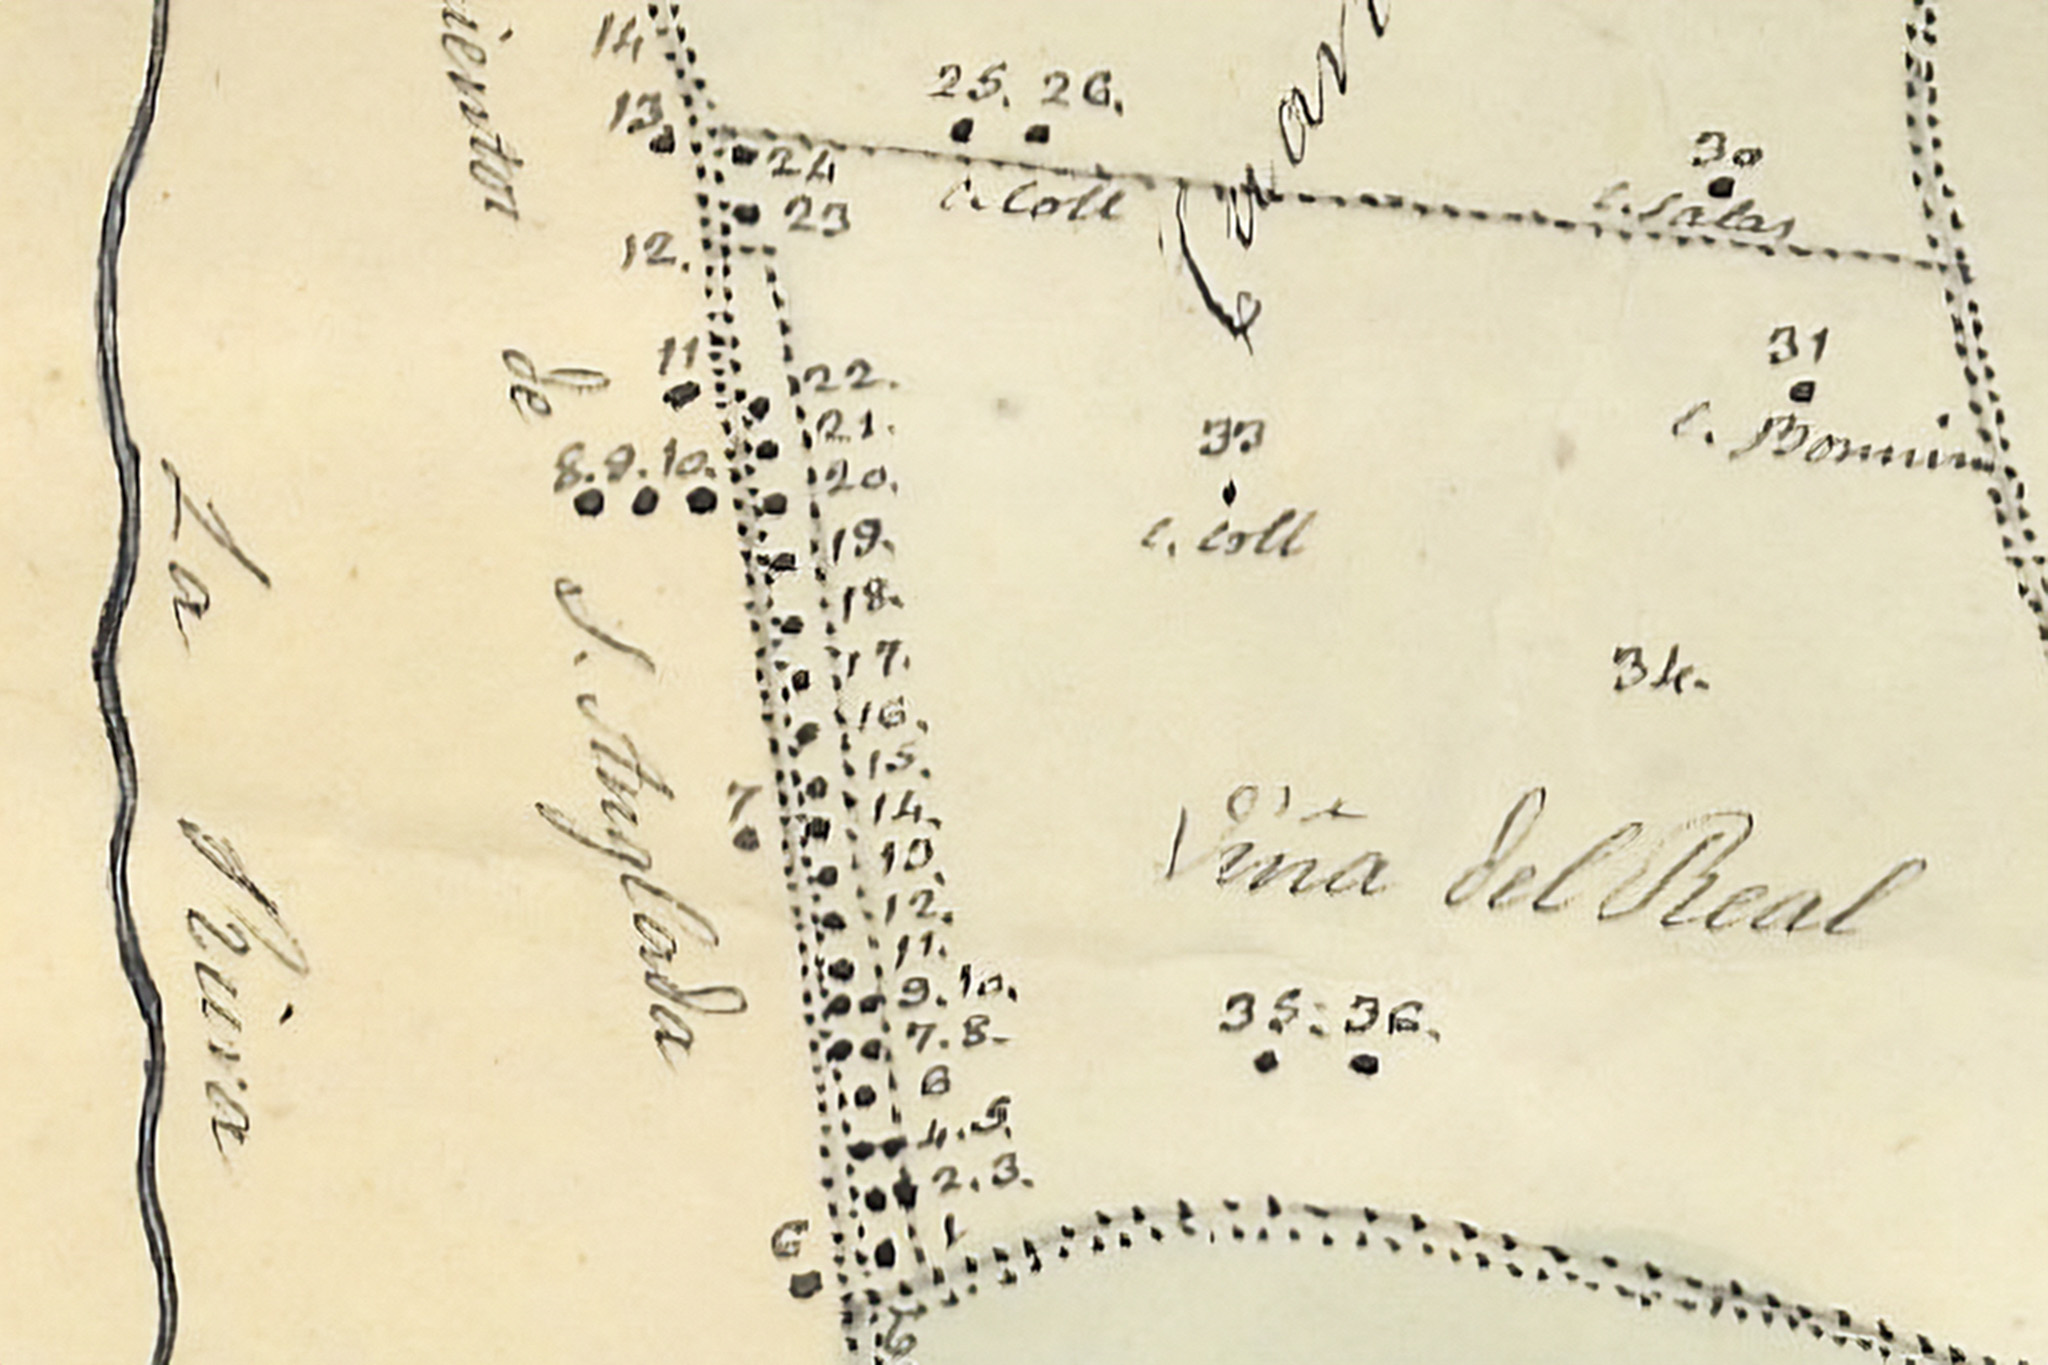 14
13.
25. 26.
24
23
C. Coll
30
C. Salas
12.
11
31
C. Bonnin
22.
21.
8. 9. 10.
20.
33
C. Coll
19.
18.
17.
34.
16.
15.
7
14.
13.
12.
11.
9. 10.
7. 8.
6
4. 5.
2. 3.
1
6
Viña del Real
35. 36.
de
J. Anglada
La
Riera